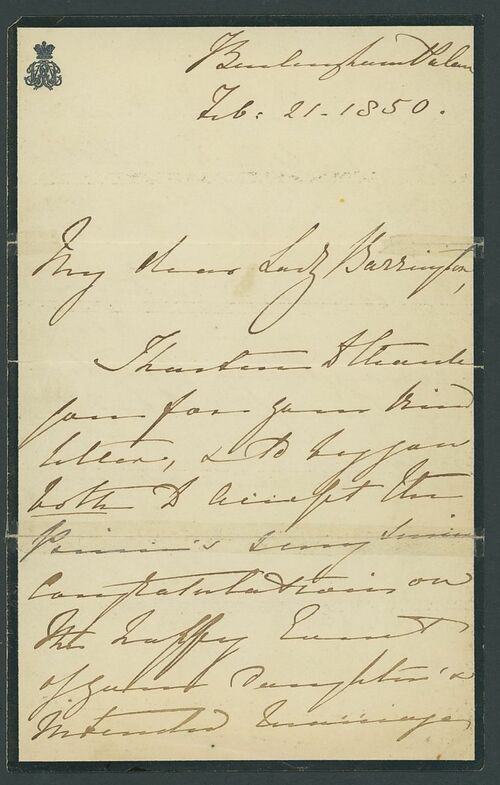 Buckingham Palace
Feb: 21 - 1850.
My dear Lady Barrington,
I hasten to thank
you for your kind
letter, & to beg you
both to accept the
Prince's & my sincere
congratulations on
the happy Event
of your Daughter's
intended Marriage